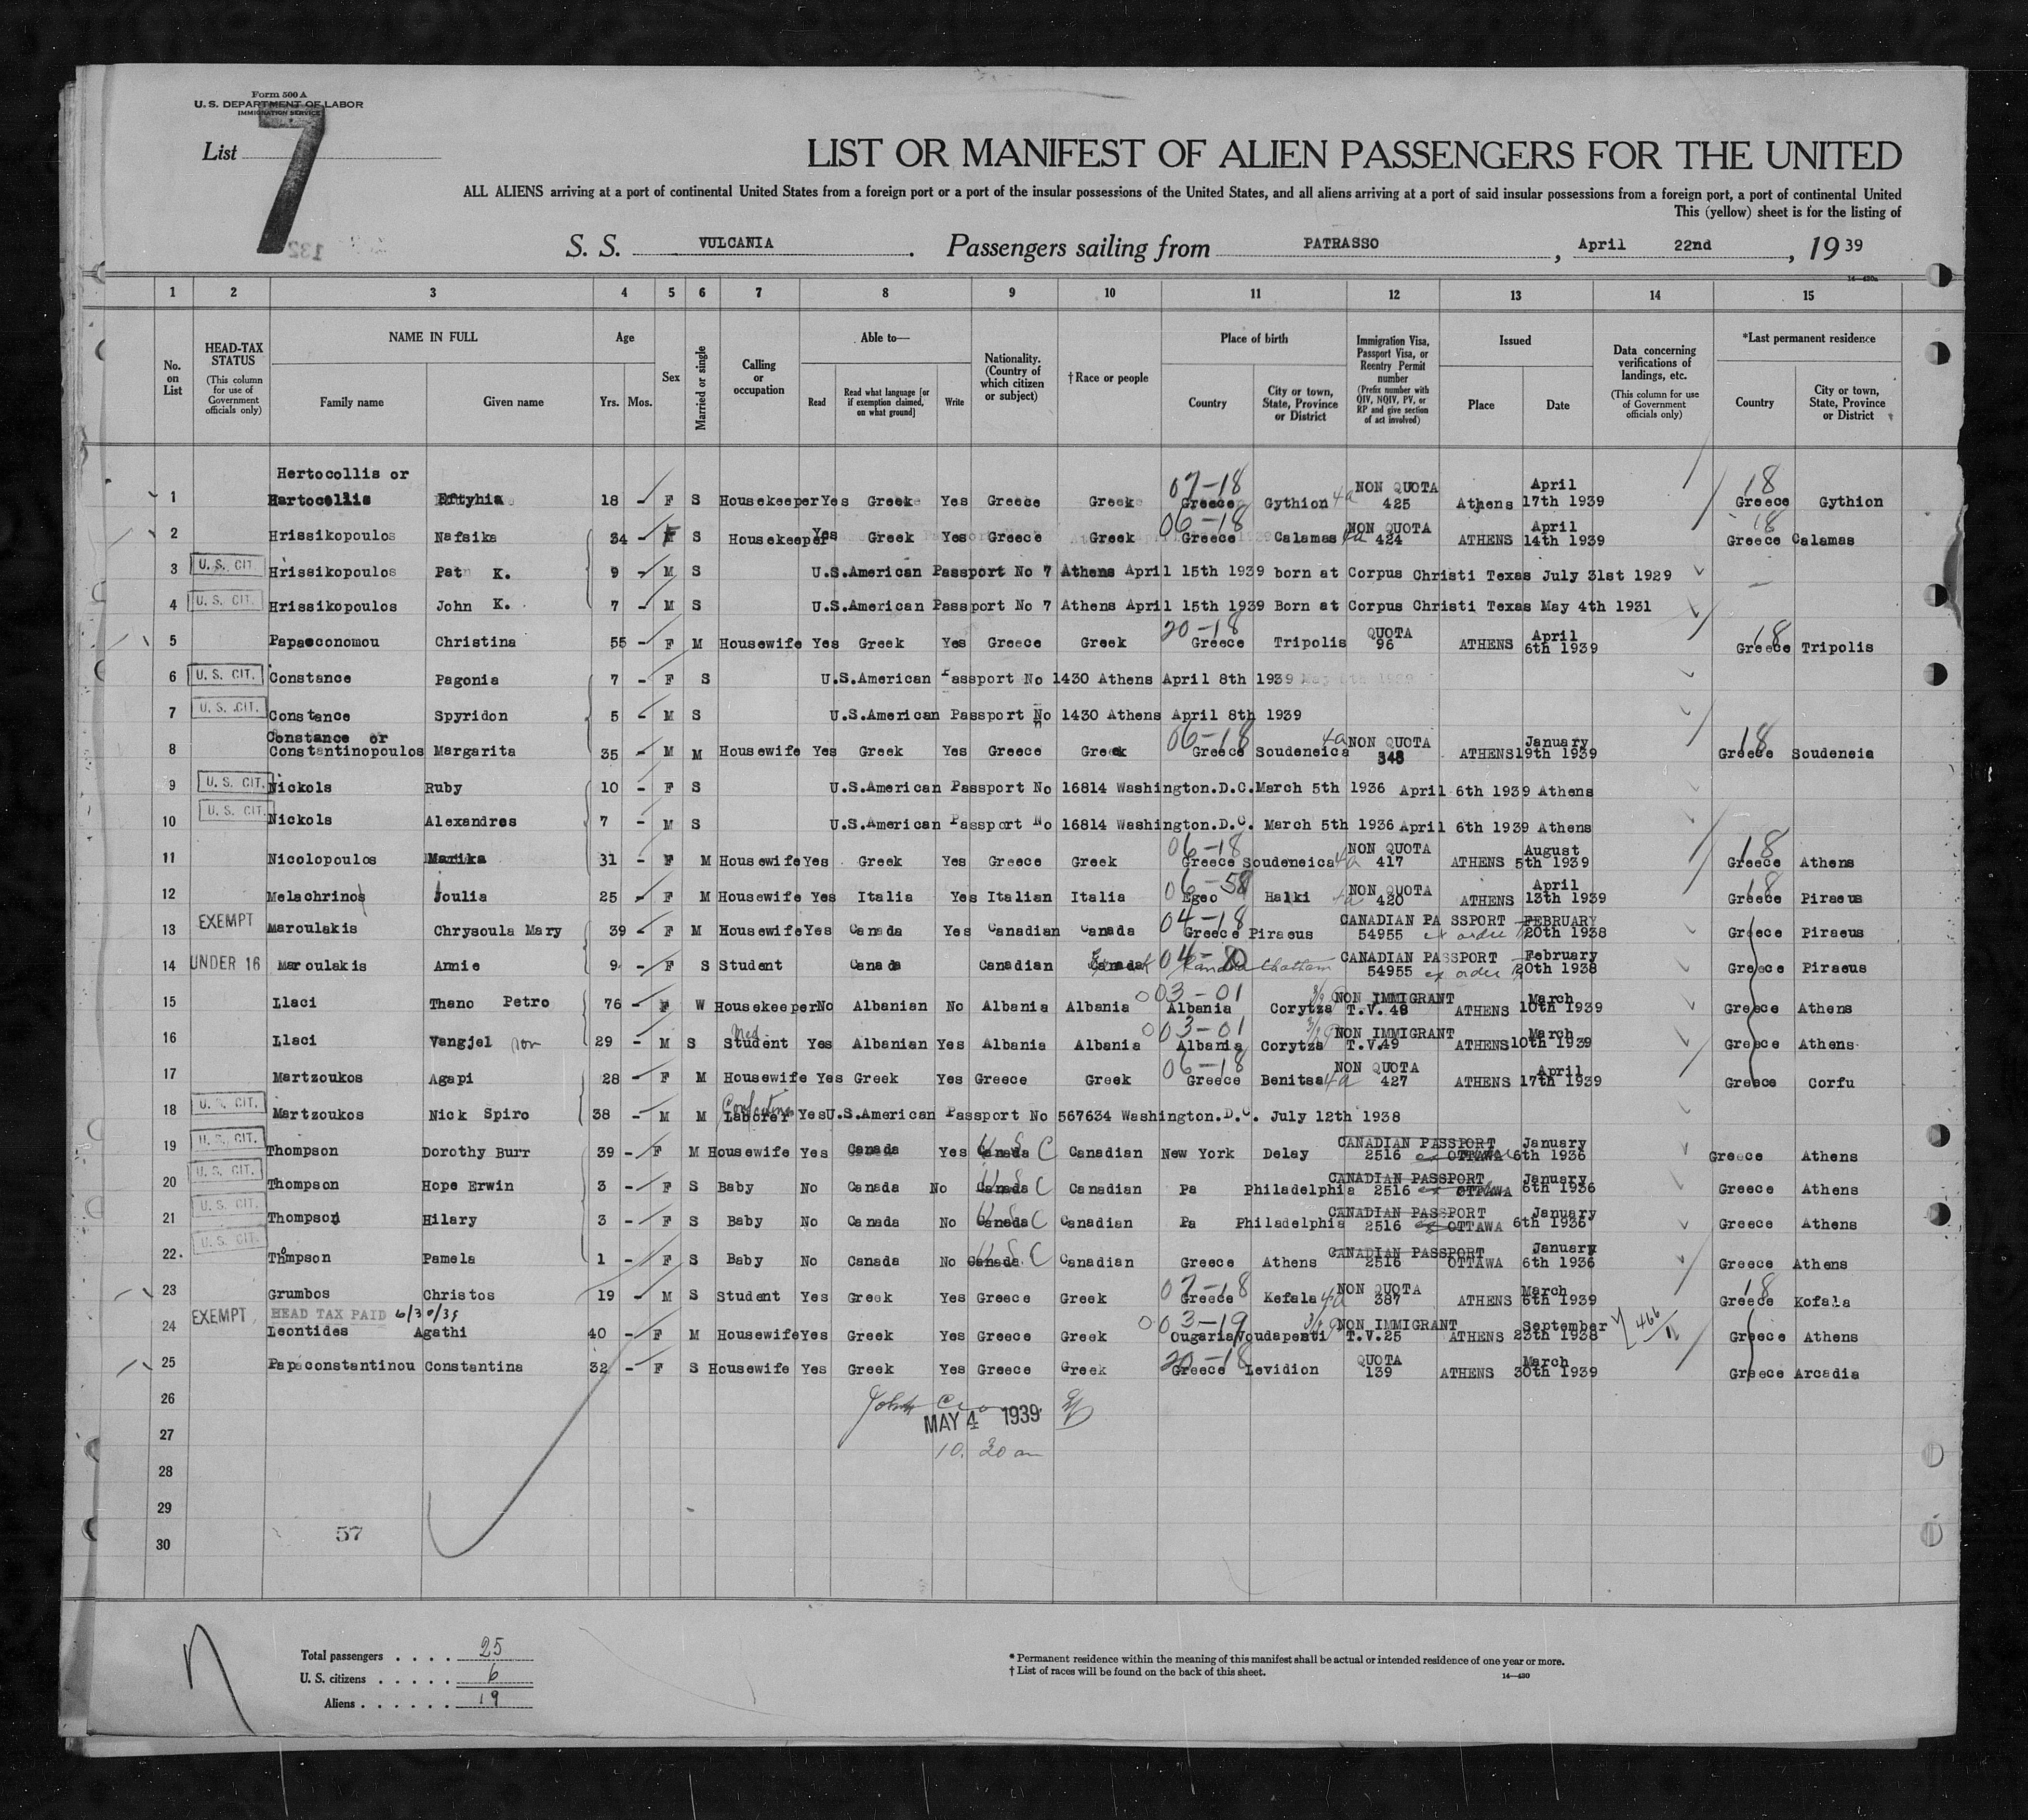 Form 500 A
U. S. DEPARTMENT OF LABOR
IMMIGRATION SERVICE
List 7
LIST OR MANIFEST OF ALIEN PASSENGERS FOR THE UNITED
ALL ALIENS arriving at a port of continental United States from a foreign port or a port of the insular possessions of the United States, and all aliens arriving at a port of said insular possessions from a foreign port, a port of continental United
This (yellow) sheet is for the listing of
132
S. S. VULCANIA. Passengers sailing from PATRASSO, April 22nd, 19 39
1 2 3 4 5 6 7 8 9 10 11 12 13 14 15
No. on List
HEAD-TAX STATUS (This column for use of Government officials only)
NAME IN FULL Family name Given name
Age Yrs. Mos.
Sex
Married or single
Calling or occupation
Able to— Read Read what language [or if exemption claimed, on what ground] Write
Nationality. (Country of which citizen or subject)
†Race or people
Place of birth Country City or town, State, Province or District
Immigration Visa, Passport Visa, or Reentry Permit number (Prefix number with QIV, NQIV, PV, or RP and give section of act involved)
Issued Place Date
Data concerning verifications of landings, etc. (This column for use of Government officials only)
*Last permanent residence Country City or town, State, Province or District
Hertocollis or 07-18 NON QUOTA April 18
1 Hartocollis Eftyhia 18 - F S Housekeeper Yes Greek Yes Greece Greek Greece Gythion 4a 425 Athens 17th 1939 Greece Gythion
06-18 NON QUOTA April 18
2 Hrissikopoulos Nafsika 34 - F S Housekeeper Yes Greek Yes Greece Greek Greece Calamas 4a 424 ATHENS 14th 1939 Greece Calamas
3 U. S. CIT. Hrissikopoulos Pat K. 9 - M S U.S.American Passport No 7 Athens April 15th 1939 born at Corpus Christi Texas July 31st 1929
4 U. S. CIT. Hrissikopoulos John K. 7 - M S U.S.American Passport No 7 Athens April 15th 1939 Born at Corpus Christi Texas May 4th 1931
20-18 QUOTA April 18
5 Papaeconomou Christina 55 - F M Housewife Yes Greek Yes Greece Greek Greece Tripolis 96 ATHENS 6th 1939 Greece Tripolis
6 U. S. CIT. Constance Pagonia 7 - F S U.S.American Passport No 1430 Athens April 8th 1939
7 U. S. CIT. Constance Spyridon 5 - M S U.S.American Passport No 1430 Athens April 8th 1939
Constance or 06-18 4a NON QUOTA January 18
8 Constantinopoulos Margarita 35 - M M Housewife Yes Greek Yes Greece Greek Greece Soudeneica 348 ATHENS 19th 1939 Greece Soudeneia
9 U. S. CIT. Nickols Ruby 10 - F S U.S.American Passport No 16814 Washington.D.C.March 5th 1936 April 6th 1939 Athens
10 U. S. CIT. Nickols Alexandros 7 - M S U.S.American Passport No 16814 Washington.D.C. March 5th 1936 April 6th 1939 Athens
06-18 NON QUOTA August 18
11 Nicolopoulos Marika 31 - F M Housewife Yes Greek Yes Greece Greek Greece Soudeneica 4a 417 ATHENS 5th 1939 Greece Athens
06-58 NON QUOTA April 18
12 Melachrinos Joulia 25 - F M Housewife Yes Italia Yes Italian Italia Egeo Halki 4a 420 ATHENS 13th 1939 Greece Piraeus
04-18 CANADIAN PASSPORT FEBRUARY
13 EXEMPT Maroulakis Chrysoula Mary 39 - F M Housewife Yes Canada Yes Canadian Canada Greece Piraeus 54955 ex order 20th 1938 Greece Piraeus
04-20 CANADIAN PASSPORT February
14 UNDER 16 Maroulakis Annie 9 - F S Student Canada Canadian Canada Canada Chatham 54955 ex order 20th 1938 Greece Piraeus
003-01 3/2 NON IMMIGRANT March
15 Llaci Thano Petro 76 - F W Housekeeper No Albanian No Albania Albania Albania Corytza T.V.48 ATHENS 10th 1939 Greece Athens
Med. 003-01 3/2 NON IMMIGRANT March
16 Llaci Vangjel 29 - M S Student Yes Albanian Yes Albania Albania Albania Corytza T.V.49 ATHENS 10th 1939 Greece Athens
06-18 NON QUOTA April
17 Martzoukos Agapi 28 - F M Housewife Yes Greek Yes Greece Greek Greece Benitsa 4a 427 ATHENS 17th 1939 Greece Corfu
18 U. S. CIT. Martzoukos Nick Spiro 38 - M M Laborer Yes U.S.American Passport No 567634 Washington.D.C. July 12th 1938
U S C CANADIAN PASSPORT January
19 U. S. CIT. Thompson Dorothy Burr 39 - F M Housewife Yes Canada Yes Canada Canadian New York Delay 2516 OTTAWA 6th 1936 Greece Athens
U S C CANADIAN PASSPORT January
20 U. S. CIT. Thompson Hope Erwin 3 - F S Baby No Canada No Canada Canadian Pa Philadelphia 2516 OTTAWA 6th 1936 Greece Athens
U S C CANADIAN PASSPORT January
21 U. S. CIT. Thompson Hilary 3 - F S Baby No Canada No Canada Canadian Pa Philadelphia 2516 OTTAWA 6th 1936 Greece Athens
U S C CANADIAN PASSPORT January
22 U. S. CIT. Thompson Pamela 1 - F S Baby No Canada No Canada Canadian Greece Athens 2516 OTTAWA 6th 1936 Greece Athens
07-18 NON QUOTA March 18
23 Grumbos Christos 19 - M S Student Yes Greek Yes Greece Greek Greece Kefala 4a 387 ATHENS 6th 1939 Greece Kofala
HEAD TAX PAID 6/30/39 003-19 3/2 NON IMMIGRANT September 466
24 EXEMPT Leontides Agathi 40 - F M Housewife Yes Greek Yes Greece Greek Ougaria Voudapesti T.V.25 ATHENS 23th 1938 Greece Athens
20-18 QUOTA March
25 Papaconstantinou Constantina 32 - F S Housewife Yes Greek Yes Greece Greek Greece Levidion 139 ATHENS 30th 1939 Greece Arcadia
26 John
27 MAY 4 1939
10.20 am
28
29
30
57
Total passengers . . . . 25
U. S. citizens . . . . . 6
Aliens . . . . . . 19
* Permanent residence within the meaning of this manifest shall be actual or intended residence of one year or more.
† List of races will be found on the back of this sheet.
14—430